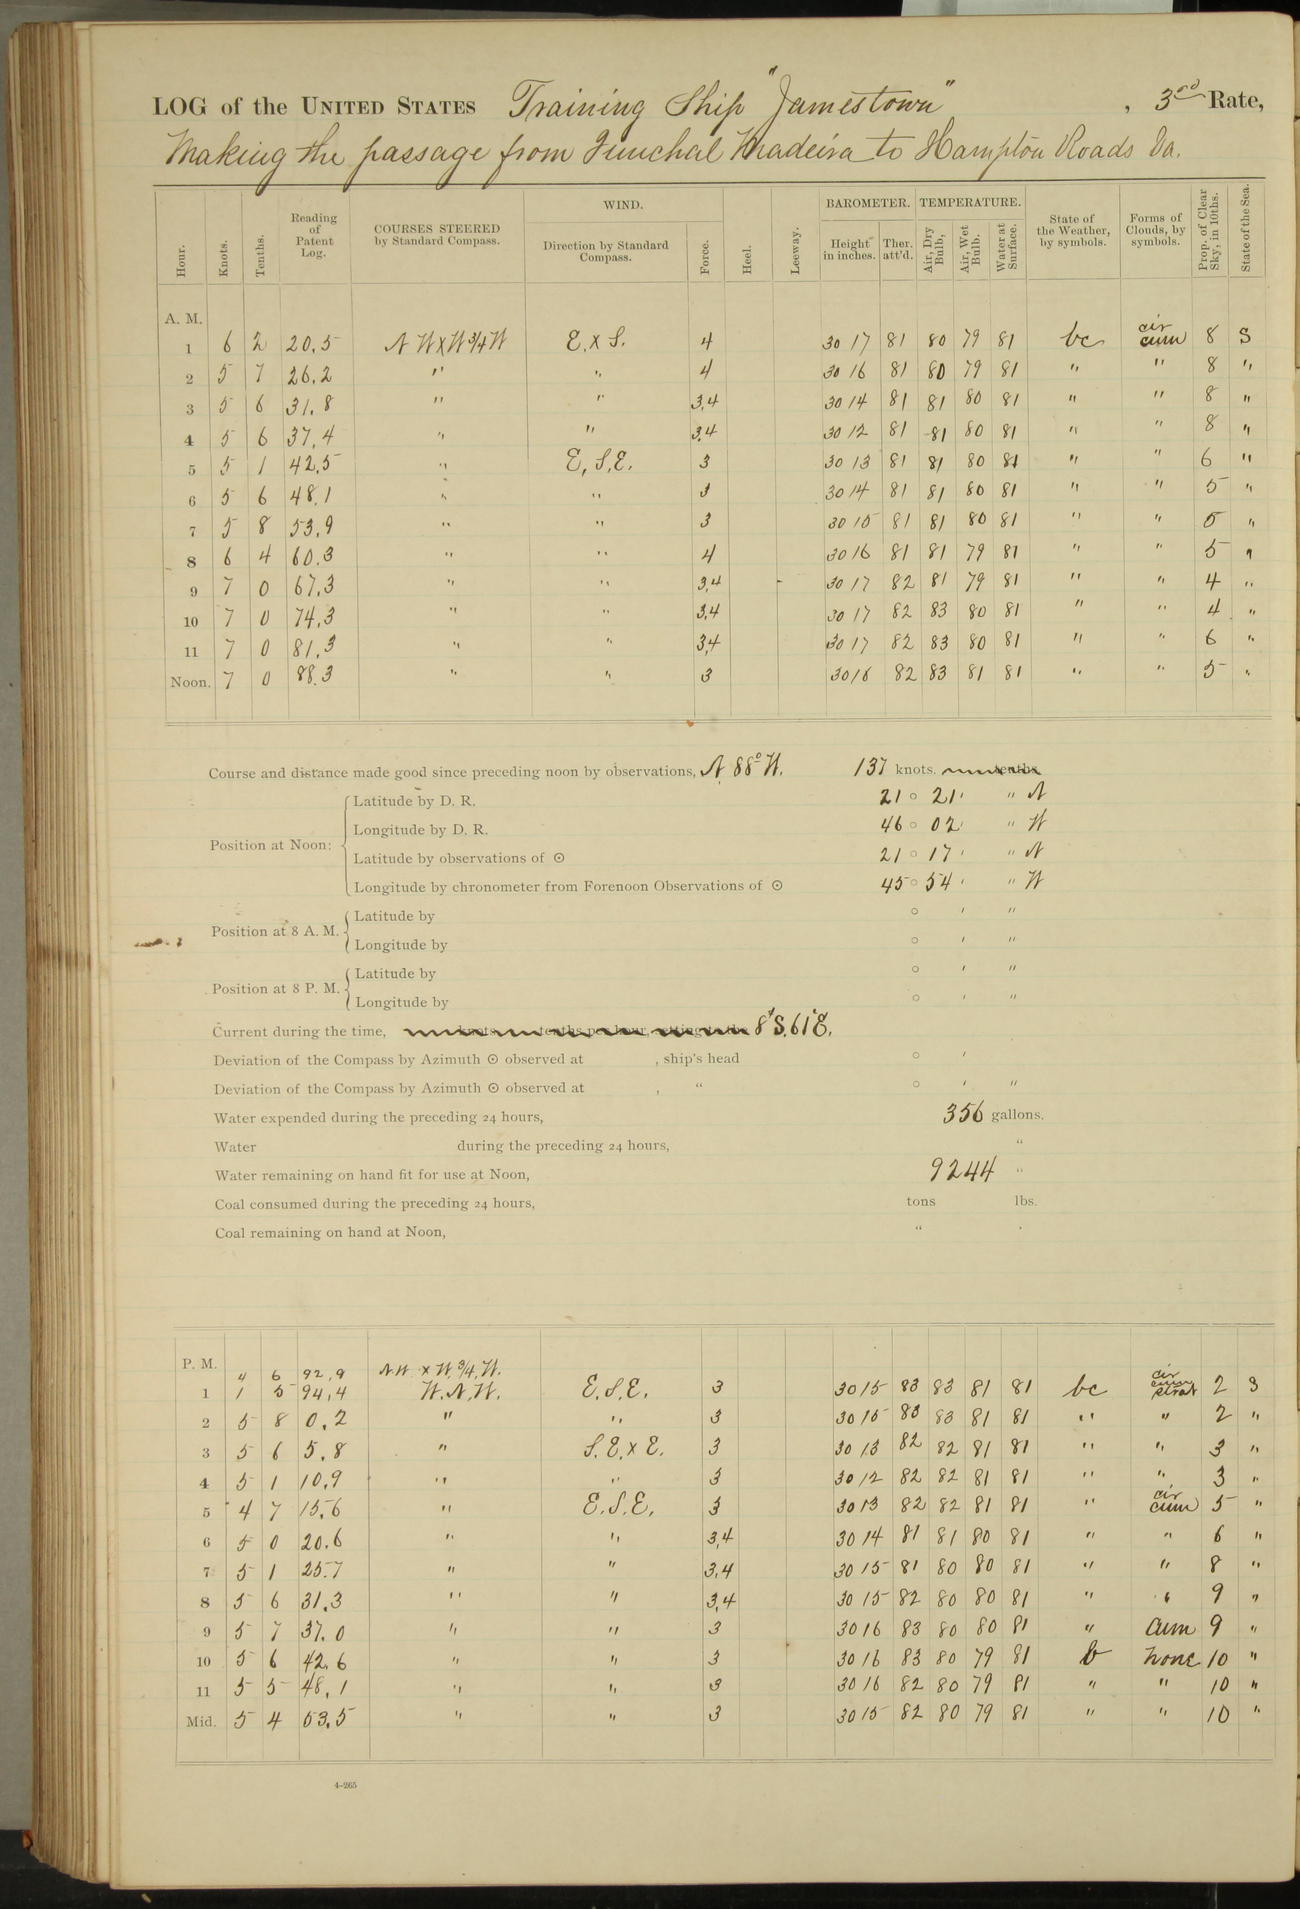 LOG of the UNITED STATES Training Ship "Jamestown", 3rd Rate,
Making the passage from Funchal Madeira to Hampton Roads Va.
Hour. Knots. Tenths. Reading of Patent Log. COURSES STEERED by Standard Compass. WIND. Direction by Standard Compass. Force. Heel. Leeway. BAROMETER. Height in inches. Ther. att'd. TEMPERATURE. Air, Dry Bulb, Air, Wet Bulb. Water at Surface. State of the Weather, by symbols. Forms of Clouds, by symbols. Prop. of Clear Sky, in 10ths. State of the Sea.
A. M.
1 6 2 20.5 N W x W 3/4 W E. x S. 4 30 17 81 80 79 81 bc cir cum 8 S
2 5 7 26.2 " " 4 30 16 81 80 79 81 " " 8 "
3 5 6 31.8 " " 3,4 30 14 81 81 80 81 " " 8 "
4 5 6 37.4 " " 3,4 30 12 81 81 80 81 " " 8 "
5 5 1 42.5 " E. S. E. 3 30 13 81 81 80 81 " " 6 "
6 5 6 48.1 " " 3 30 14 81 81 80 81 " " 5 "
7 5 8 53.9 " " 3 30 15 81 81 80 81 " " 5 "
8 6 4 60.3 " " 4 30 16 81 81 79 81 " " 5 "
9 7 0 67.3 " " 3,4 30 17 82 81 79 81 " " 4 "
10 7 0 74.3 " " 3,4 30 17 82 83 80 81 " " 4 "
11 7 0 81.3 " " 3,4 30 17 82 83 80 81 " " 6 "
Noon. 7 0 88.3 " " 3 30 16 82 83 81 81 " " 5 "
Course and distance made good since preceding noon by observations, N 88° W. 137 knots. tenths.
Position at Noon:
Latitude by D. R. 21 ° 21 ' " N
Longitude by D. R. 46 ° 02 ' " W
Latitude by observations of ☉ 21 ° 17 ' " N
Longitude by chronometer from Forenoon Observations of ☉ 45 ° 54 ' " W
Position at 8 A. M.
Latitude by ° ' "
Longitude by ° ' "
Position at 8 P. M.
Latitude by ° ' "
Longitude by ° ' "
Current during the time, knots tenths per hour, setting to the 8' S. 61° E.
Deviation of the Compass by Azimuth ☉ observed at , ship's head ° '
Deviation of the Compass by Azimuth ☉ observed at , " ° ' "
Water expended during the preceding 24 hours, 356 gallons.
Water during the preceding 24 hours, "
Water remaining on hand fit for use at Noon, 9244 "
Coal consumed during the preceding 24 hours, tons lbs.
Coal remaining on hand at Noon, "
P. M.
4 6 92.9 N W x W. 3/4. W.
1 1 5 94.4 W. N. W. E. S. E. 3 30 15 83 83 81 81 bc cir cum strat 2 S
2 5 8 0.2 " " 3 30 15 83 83 81 81 " " 2 "
3 5 6 5.8 " S. E. x E. 3 30 13 82 82 81 81 " " 3 "
4 5 1 10.9 " " 3 30 12 82 82 81 81 " " 3 "
5 4 7 15.6 " E. S. E. 3 30 13 82 82 81 81 " cir cum 5 "
6 5 0 20.6 " " 3,4 30 14 81 81 80 81 " " 6 "
7 5 1 25.7 " " 3,4 30 15 81 80 80 81 " " 8 "
8 5 6 31.3 " " 3,4 30 15 82 80 80 81 " " 9 "
9 5 7 37.0 " " 3 30 16 83 80 80 81 " cum 9 "
10 5 6 42.6 " " 3 30 16 83 80 79 81 b none 10 "
11 5 5 48.1 " " 3 30 16 82 80 79 81 " " 10 "
Mid. 5 4 53.5 " " 3 30 15 82 80 79 81 " " 10 "
4-265